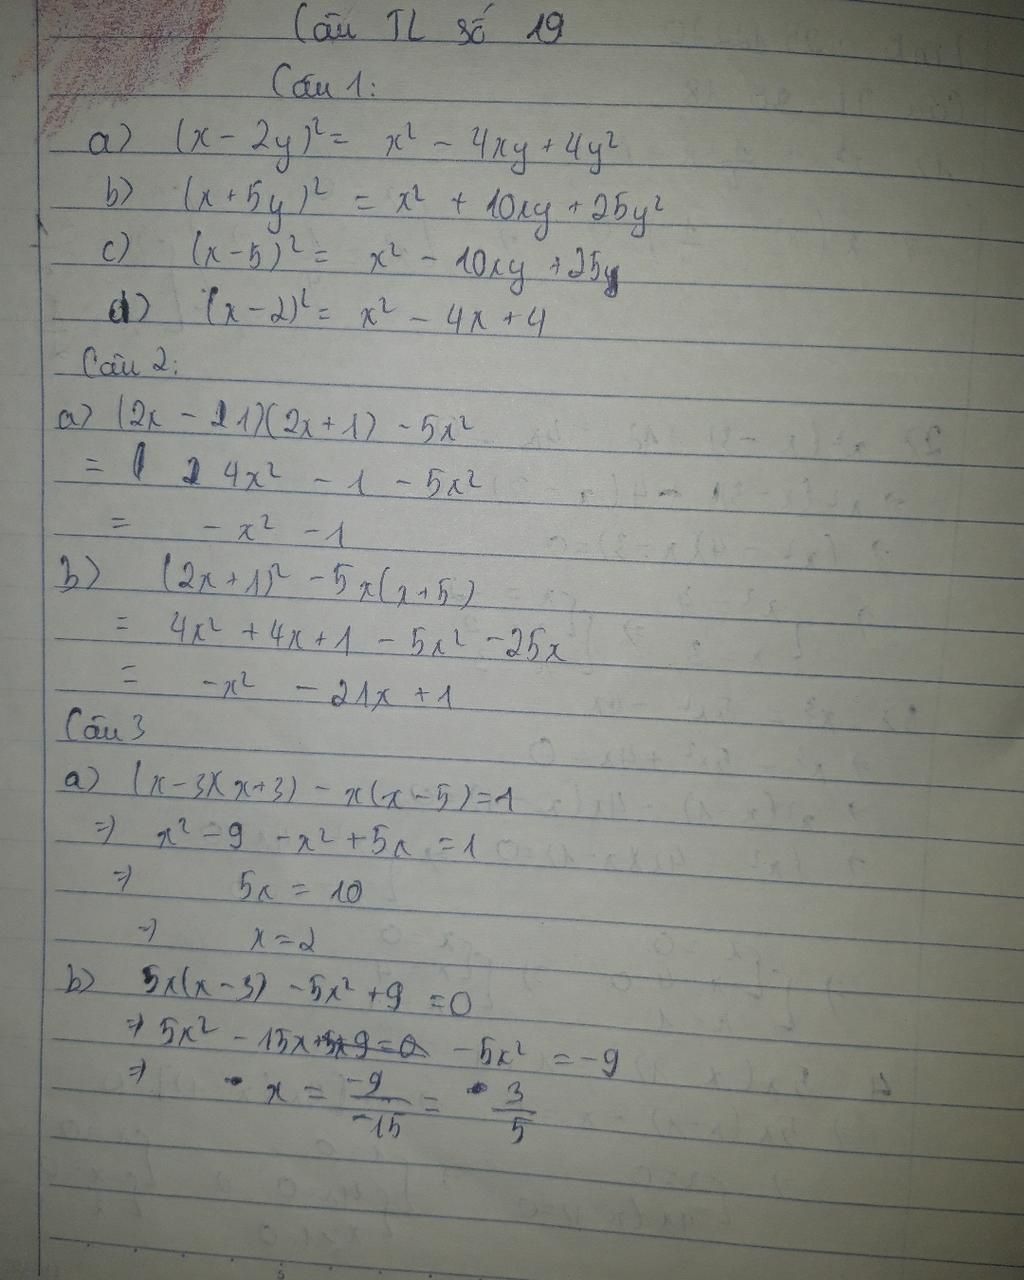 Câu TL số 19
Câu 1:
a) (x - 2y)² = x² - 4xy + 4y²
b) (x + 5y)² = x² + 10xy + 25y²
c) (x - 5)² = x² - 10xy + 25y
d) (x - 2)² = x² - 4x + 4
Câu 2:
a) (2x - 1)(2x + 1) - 5x²
= 4x² - 1 - 5x²
= - x² - 1
b) (2x + 1)² - 5x(x + 5)
= 4x² + 4x + 1 - 5x² - 25x
= -x² - 21x + 1
Câu 3
a) (x - 3)(x + 3) - x(x - 5) = 1
=> x² - 9 - x² + 5x = 1
=> 5x = 10
=> x = 2
b) 5x(x - 3) - 5x² + 9 = 0
=> 5x² - 15x - 5x² = -9
=> x = -9/-15 = 3/5